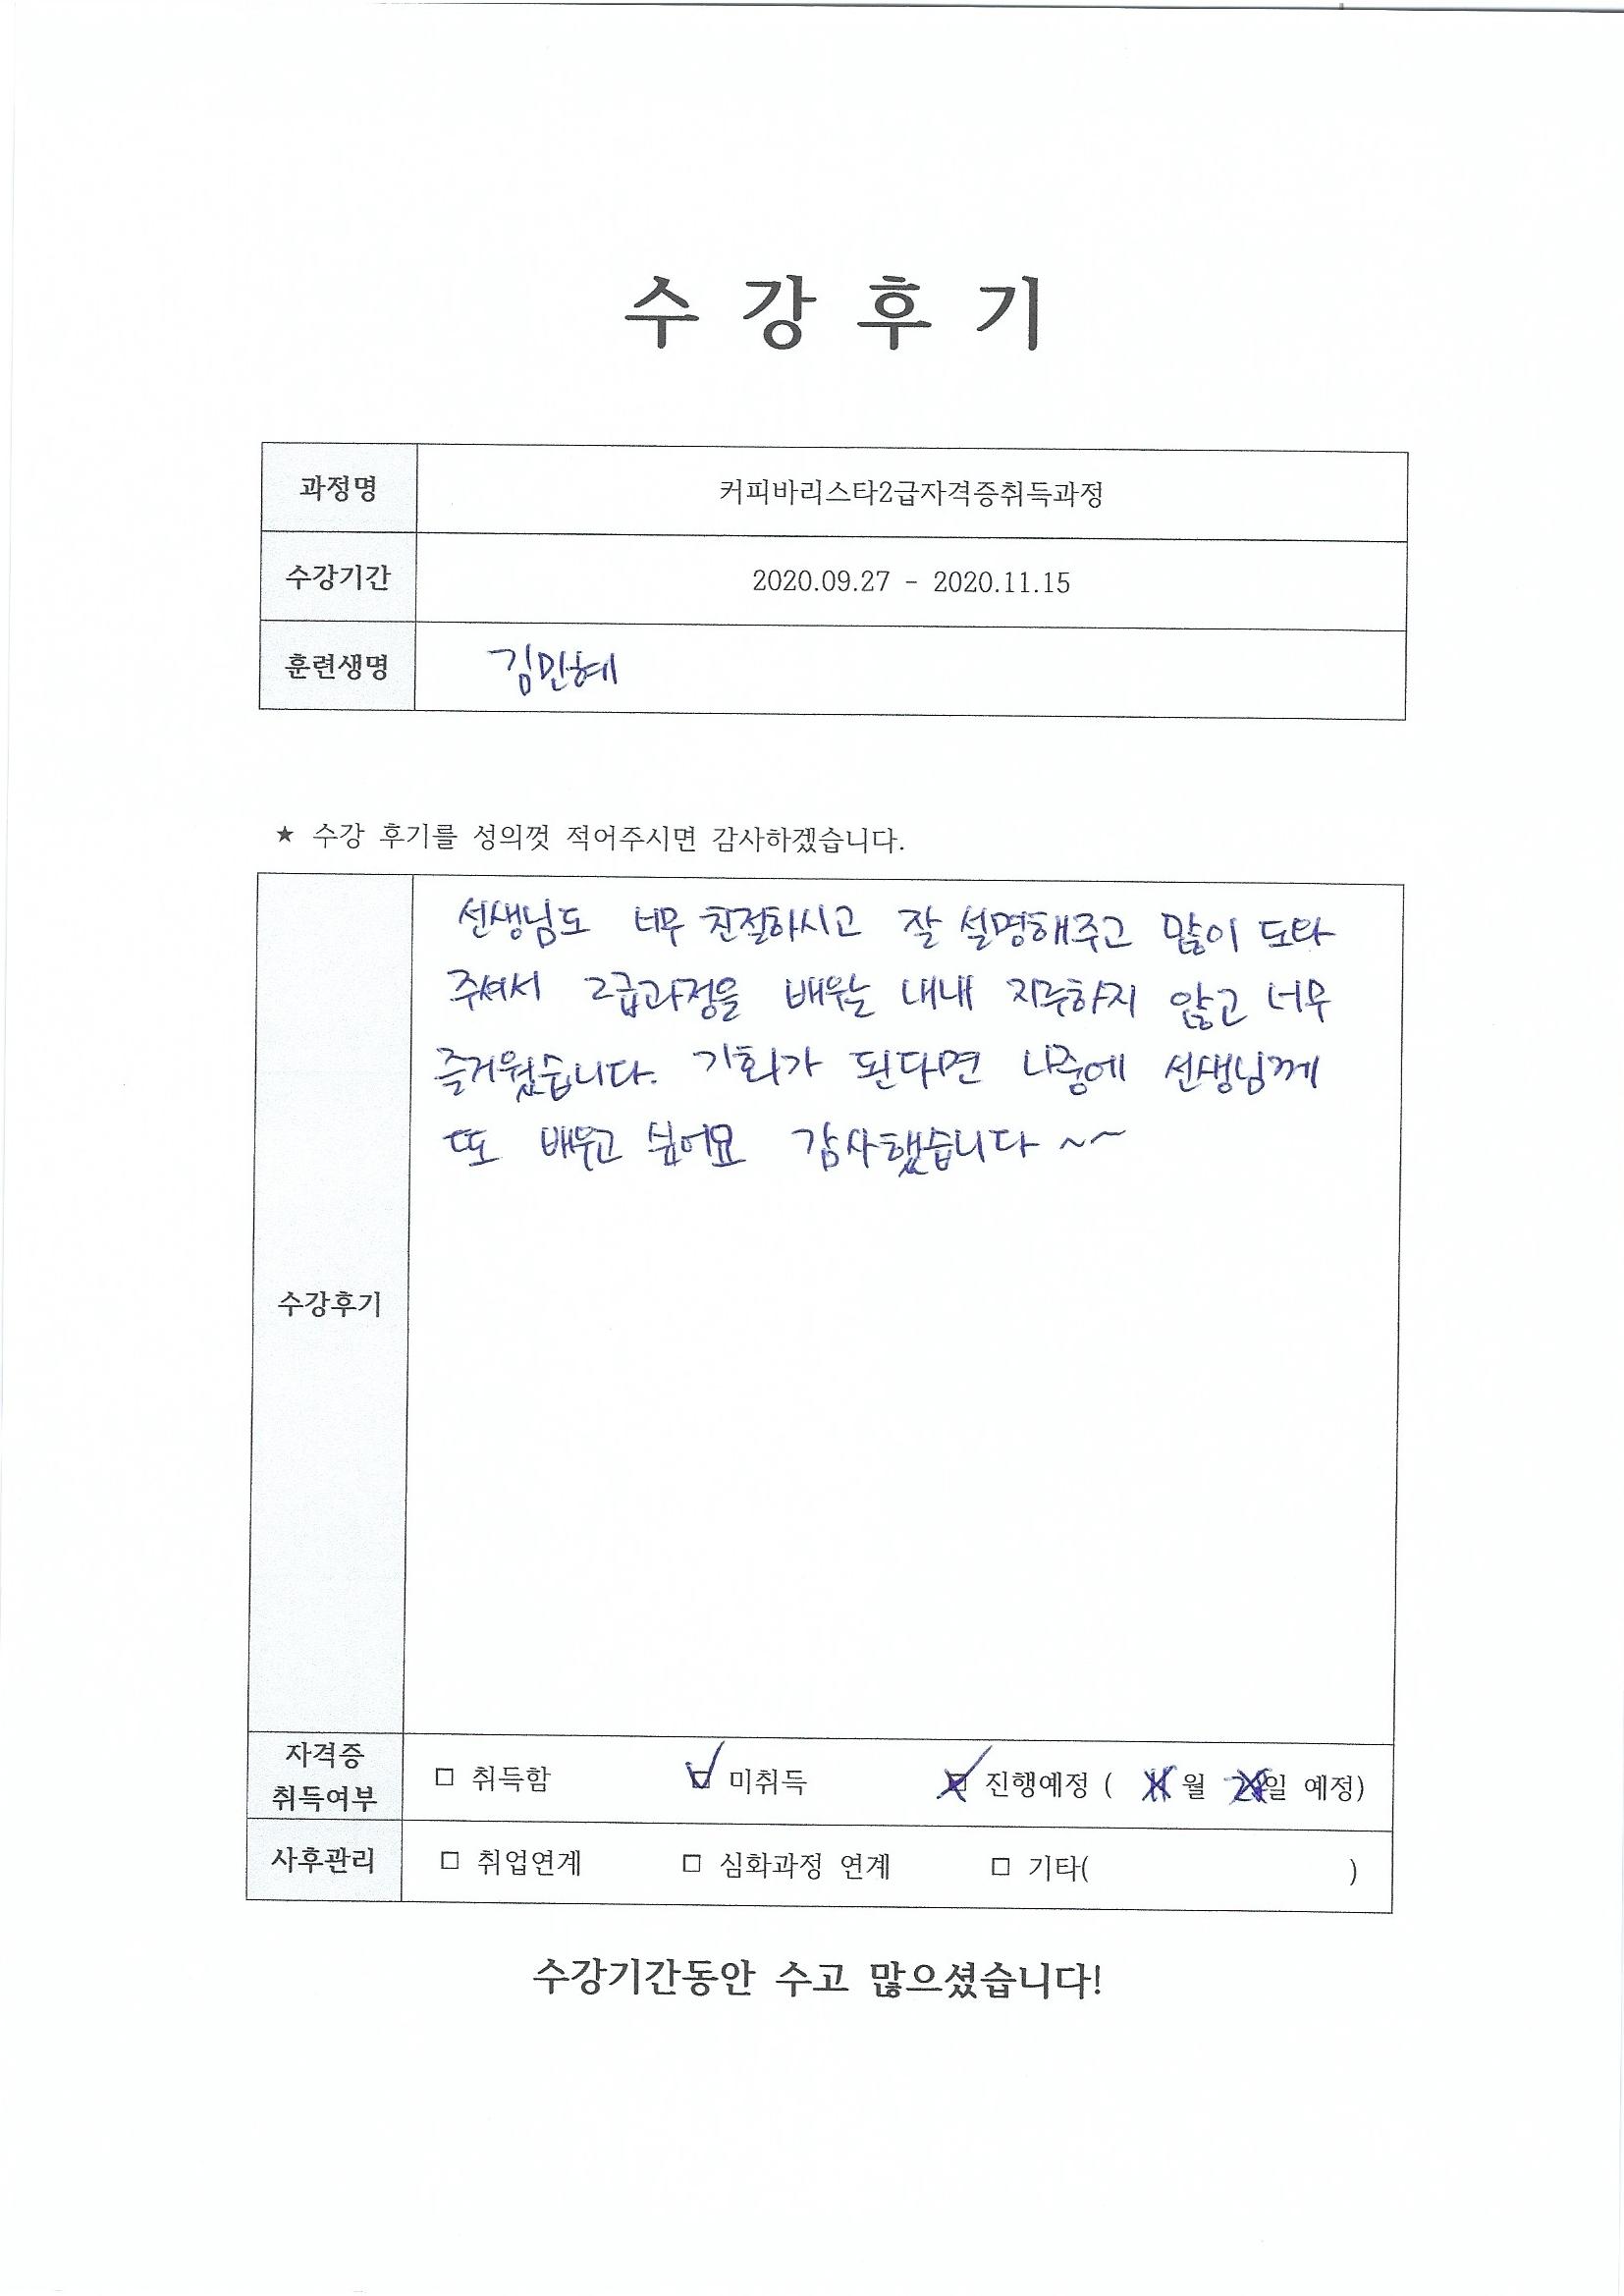 수 강 후 기
과정명 커피바리스타2급자격증취득과정
수강기간 2020.09.27 - 2020.11.15
훈련생명 김민혜
★ 수강 후기를 성의껏 적어주시면 감사하겠습니다.
선생님도 너무 친절하시고 잘 설명해주고 많이 도와
주셔서 2급과정을 배우는 내내 지루하지 않고 너무
즐거웠습니다. 기회가 된다면 나중에 선생님께
또 배우고 싶어요 감사했습니다 ~~
수강후기
자격증
취득여부 □ 취득함 □ 미취득 □ 진행예정 ( 월 일 예정)
사후관리 □ 취업연계 □ 심화과정 연계 □ 기타( )
수강기간동안 수고 많으셨습니다!